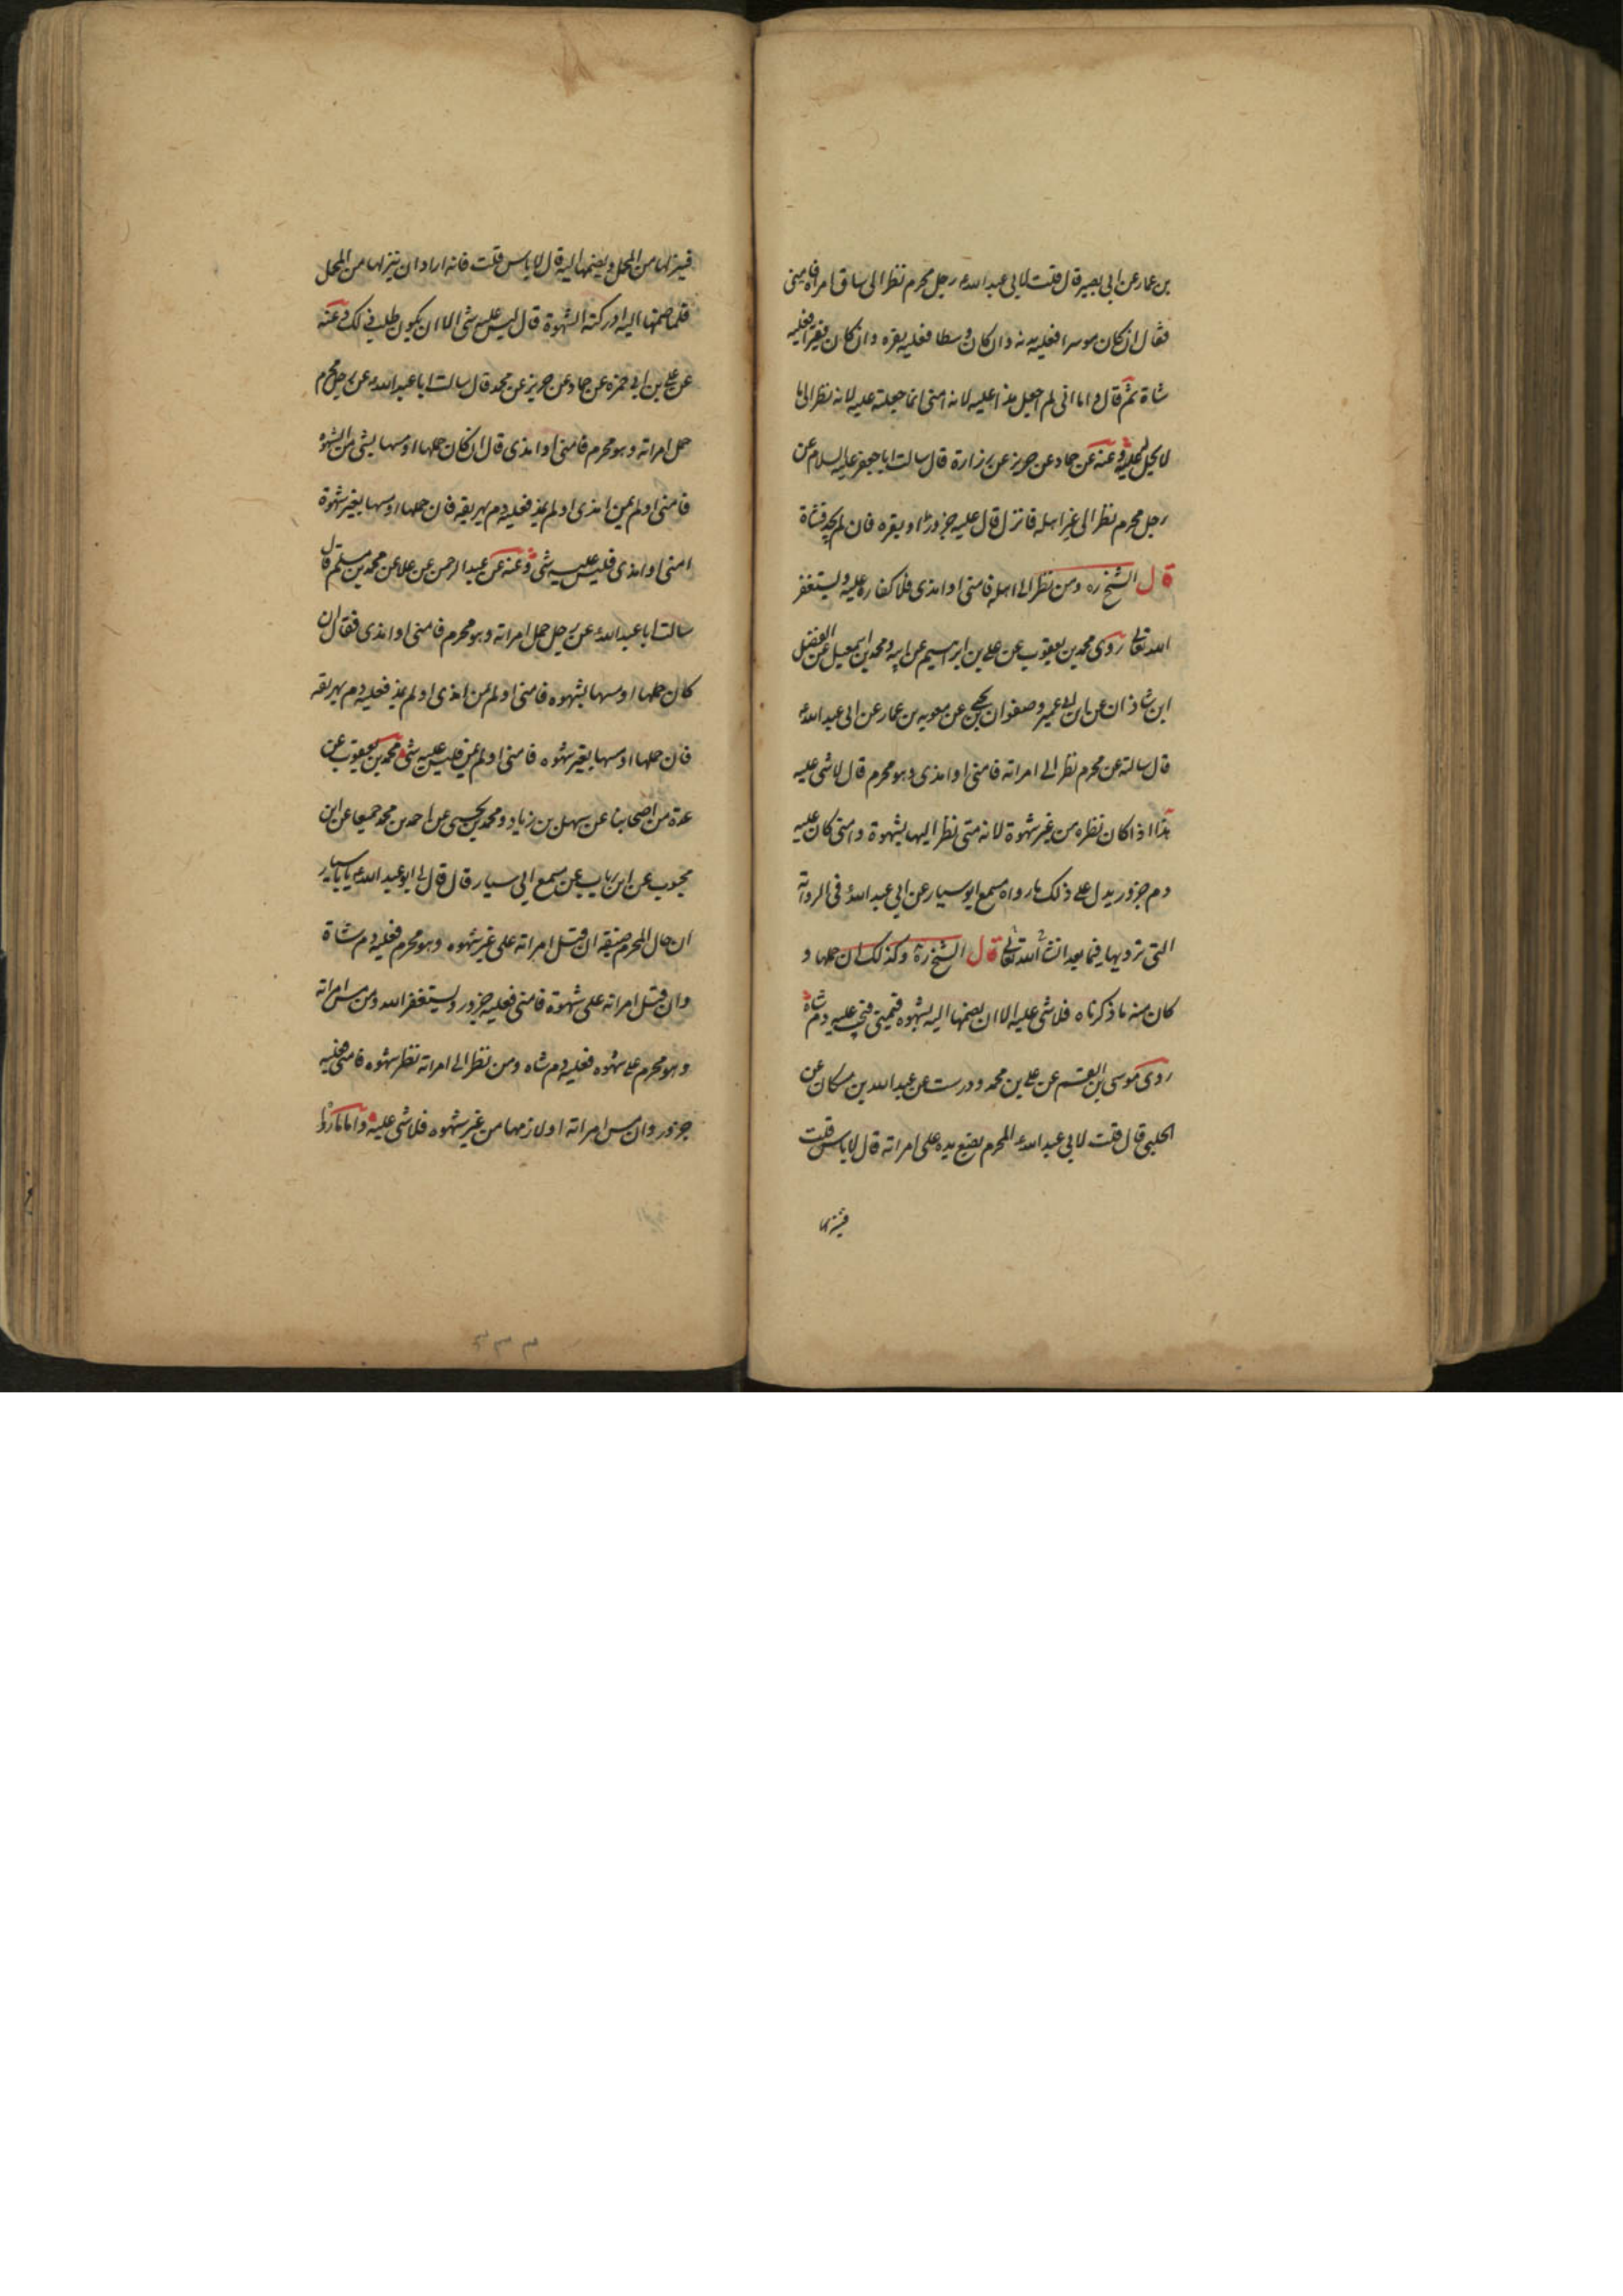 بن عمار عن ابي بصير قال قلت لابي عبد الله ع رجل محرم نظر الى ساق امراة فامنى
فقال ان كان موسرا فعليه بدنه وان كان وسطا فعليه بقره وان كان فقيرا فعليه
شاة ثم قال اما انى لم اجعل هذا عليه لانه امنى انما جعلته عليه لانه نظر الى ما
لا يحل له وعنه عن حماد عن حريز عن زرارة قال سالت ابا جعفر عليه السلام عن
رجل محرم نظر الى غير اهله فانزل قال عليه جزورا او بقره فان لم يجد فشاة
قال الشيخ ره ومن نظر الى اهله فامنى او امذى فلا كفاره عليه وليستغفر
الله تعالى روى محمد بن يعقوب عن على بن ابراهيم عن ابيه ومحمد بن اسمعيل عن الفضل
ابن شاذان عن ابن ابى عمير وصفوان بن يحيى عن معويه بن عمار عن ابى عبد الله ع
قال سالته عن محرم نظر الى امراته فامنى او امذى وهو محرم قال لا شى عليه
هذا اذا كان نظره من غير شهوة لانه متى نظر اليها بشهوة وامنى كان عليه
دم جزور يدل على ذلك ما رواه مسمع ابو سيار عن ابي عبد الله ع فى الرواية
التى نرويها فيما بعد انشا الله تعالى قال الشيخ ره وكذلك ان حملها و
كان منه ما ذكرناه فلا شى عليه الا ان يضمها اليه بشهوه فيمنى فيجب عليه دم شاة
روى موسى بن القسم عن على بن محمد ودرست عن عبد الله بن مسكان عن
الحلبى قال قلت لابي عبد الله ع المحرم يضع يده على امراته قال لا باس قلت
فينزلها
فينزلها من المحمل ويضمها اليه قال لا باس قلت فانه اراد ان ينزلها من المحمل
فلما ضمها اليه ادركته الشهوة قال ليس عليه شى الا ان يكون طلب ذلك وعنه
عن على بن ابى حمزه عن حماد عن حريز عن محمد قال سالت ابا عبد الله ع عن رجل محرم
حمل امراته وهو محرم فامنى او امذى قال ان كان حملها او مسها بشى من الشهوه
فامنى او لم يمن امذى او لم يمذ فعليه دم يهريقه فان حملها او مسها بغير شهوة
امنى او امذى فليس عليه شى وعنه عن عبد الرحمن عن علا عن محمد بن مسلم قال
سالت ابا عبد الله ع عن رجل حمل امراته وهو محرم فامنى او امذى فقال ان
كان حملها او مسها بشهوه فامنى او لم يمن امذى او لم يمذ فعليه دم يهريقه
فان حملها او مسها بغير شهوه فامنى او لم يمن فليس عليه شى محمد بن يعقوب عن
عدة من اصحابنا عن سهل بن زياد ومحمد بن يحيى عن احمد بن محمد جميعا عن ابن
محبوب عن ابن رياب عن مسمع ابي سيار قال قال لى ابو عبد الله ع يا با سيار
ان حال المحرم ضيقه ان قبل امراته على غير شهوه وهو محرم فعليه دم شاة
وان قبل امراته على شهوة فامنى فعليه جزور وليستغفر الله ومن مس امراته
وهو محرم على شهوه فعليه دم شاه ومن نظر الى امراته نظر شهوه فامنى فعليه
جزور وان مس امراته او لازمها من غير شهوه فلا شى عليه واما ما رواه